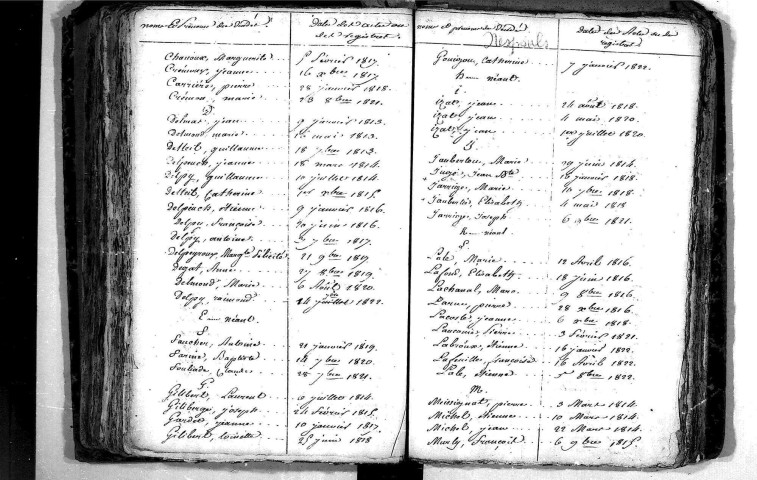 noms & Prénoms des Décédés
Dates des actes ou des registres.
Chanoux, Marguerite 1er février 1817.
Cremoux, jeanne 16 xbre 1817.
Carrière, pierre 28 janvier 1818.
Crémoux, marie 23 8bre 1821.
D
Delmas, jean 9 janvier 1813.
Delmond marie mai 1813.
Delteil, guillaume 18 7bre 1813.
Delpiach, jeanne 18 mars 1814.
Delpy, guillaume 10 juillet 1814.
Delteil, Catherine 1er xbre 1815.
Delpiach, étienne 9 janvier 1816.
Delpy, françoise 30 juin 1816.
Delpy, antoine 7bre 1817.
Delpeyroux, Margte félicité 21 9bre 1819
Degat, Anne 27 8bre 1819.
Delmond, Marie 6 Août 1820.
Delpy, raimond 24 juillet 1822.
E néant.
F
Faucher, Antoine 21 janvier 1819.
Farine, Baptiste 14 7bre 1820.
28 7bre 1821.
G
Gilibert, Laurent 6 juillet 1814.
joseph 24 février 1815.
jeanne 10 janvier 1817.
Gilibert, 25 juin 1818
noms et prénoms des Décédés
Despouls
Dates des Actes ou des registres
Gouizou, Catherine 7 janvier 1822.
h néant.
i
izat, jeane 24 août 1818.
izat, jeane 4 mai 1820.
izat, jean 1er juillet 1820.
J
Jaubertou, Marie 29 juin 1814.
Jugé, Jean Bte 18 janvier 1818.
Jarrige, Marie 10 7bre 1818.
Jaubertie, Elizabeth 4 mai 1818
Jarrige, Joseph 6 9bre 1821.
K néant
L
Lale, Marie 12 Avril 1816.
Lafond, Elisabeth 18 juin 1816.
Lachanal, Marc 9 8bre 1816.
Larue, pierre 28 xbre 1816.
Lacoste, jeanne 6 xbre 1818.
Lanconie, Pierre 3 février 1821.
Labroux, étienne 16 janvier 1822.
Lafeuille, françoise 16 Avril 1822.
Lale, Etienne 5 8bre 1822.
M
Meissignat, pierre 3 Mars 1814.
Michel, étienne 10 Mars 1814.
Michel, jean 22 Mars 1814.
Marty, François 6 9bre 1815.